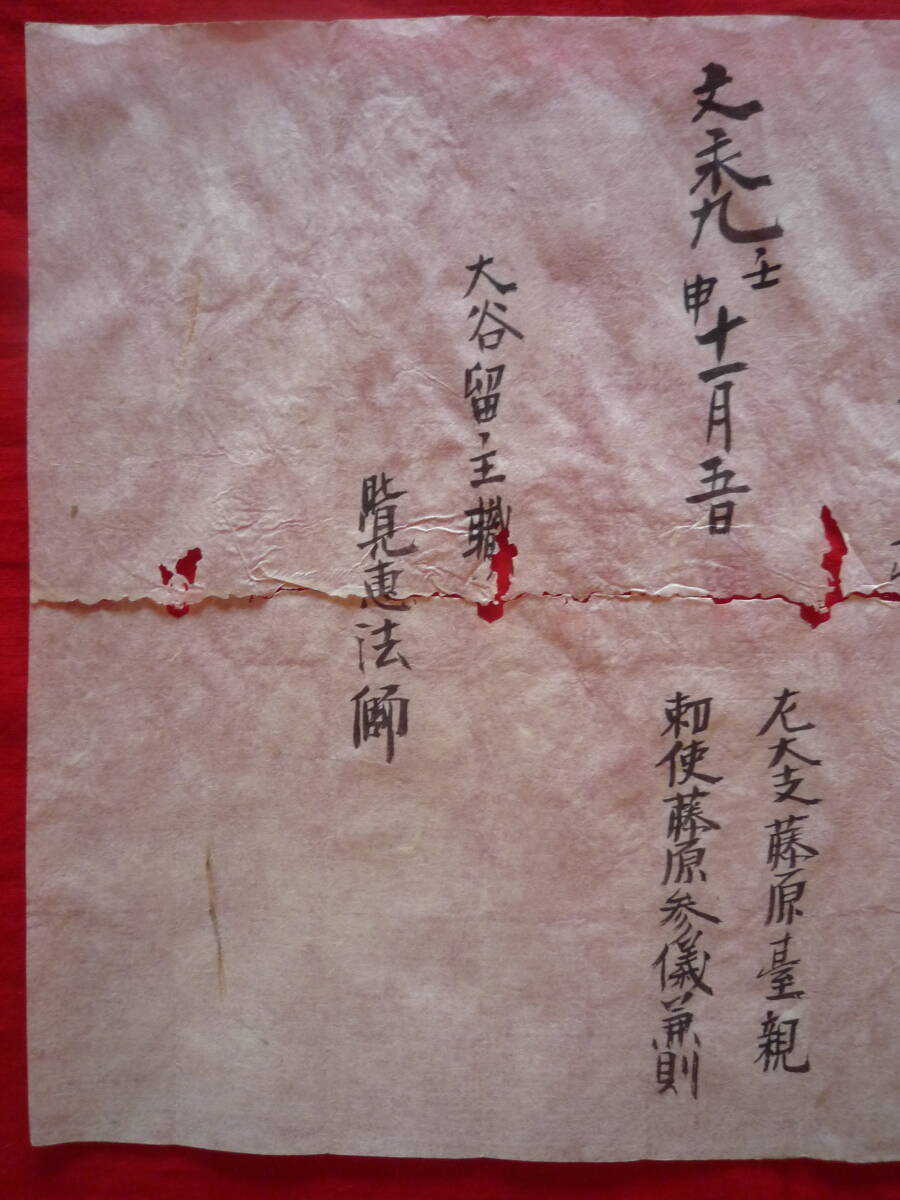 文永九壬申十一月五日
左大支藤原臺親
勅使藤原参儀兼則
大谷留主職
覚恵法師